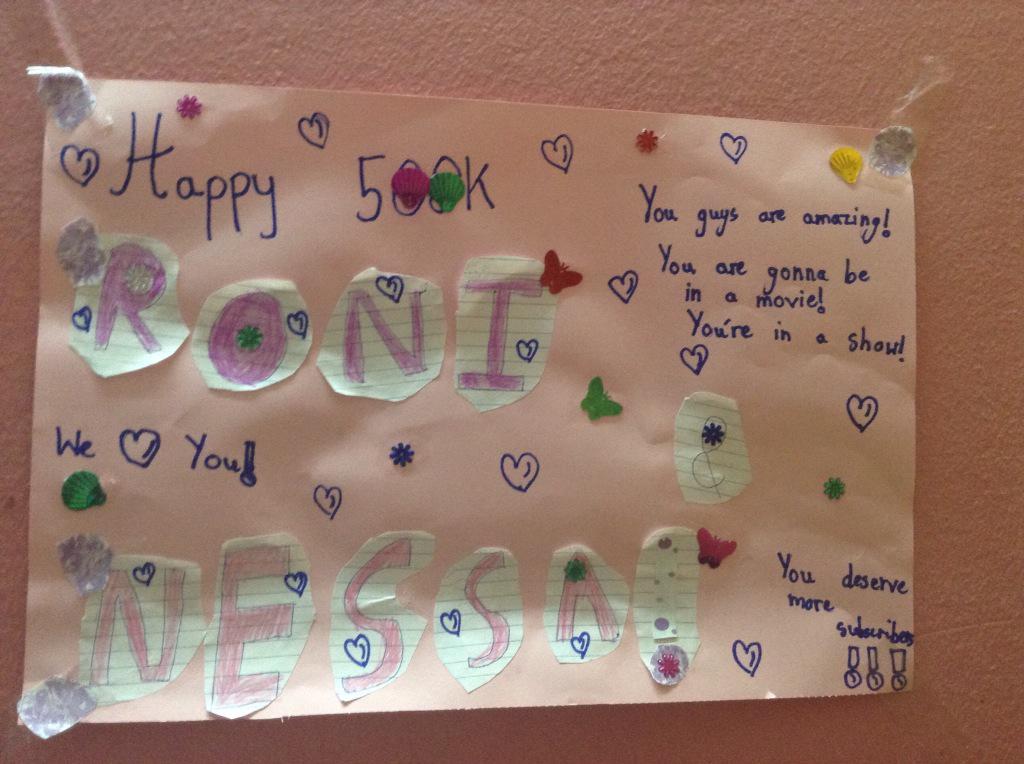 Happy 500K
You guys are amazing!
RONI
You are gonna be
in a movie!
You're in a show!
&
We You!
NESSA!
You deserve
more
subscribers
!!!